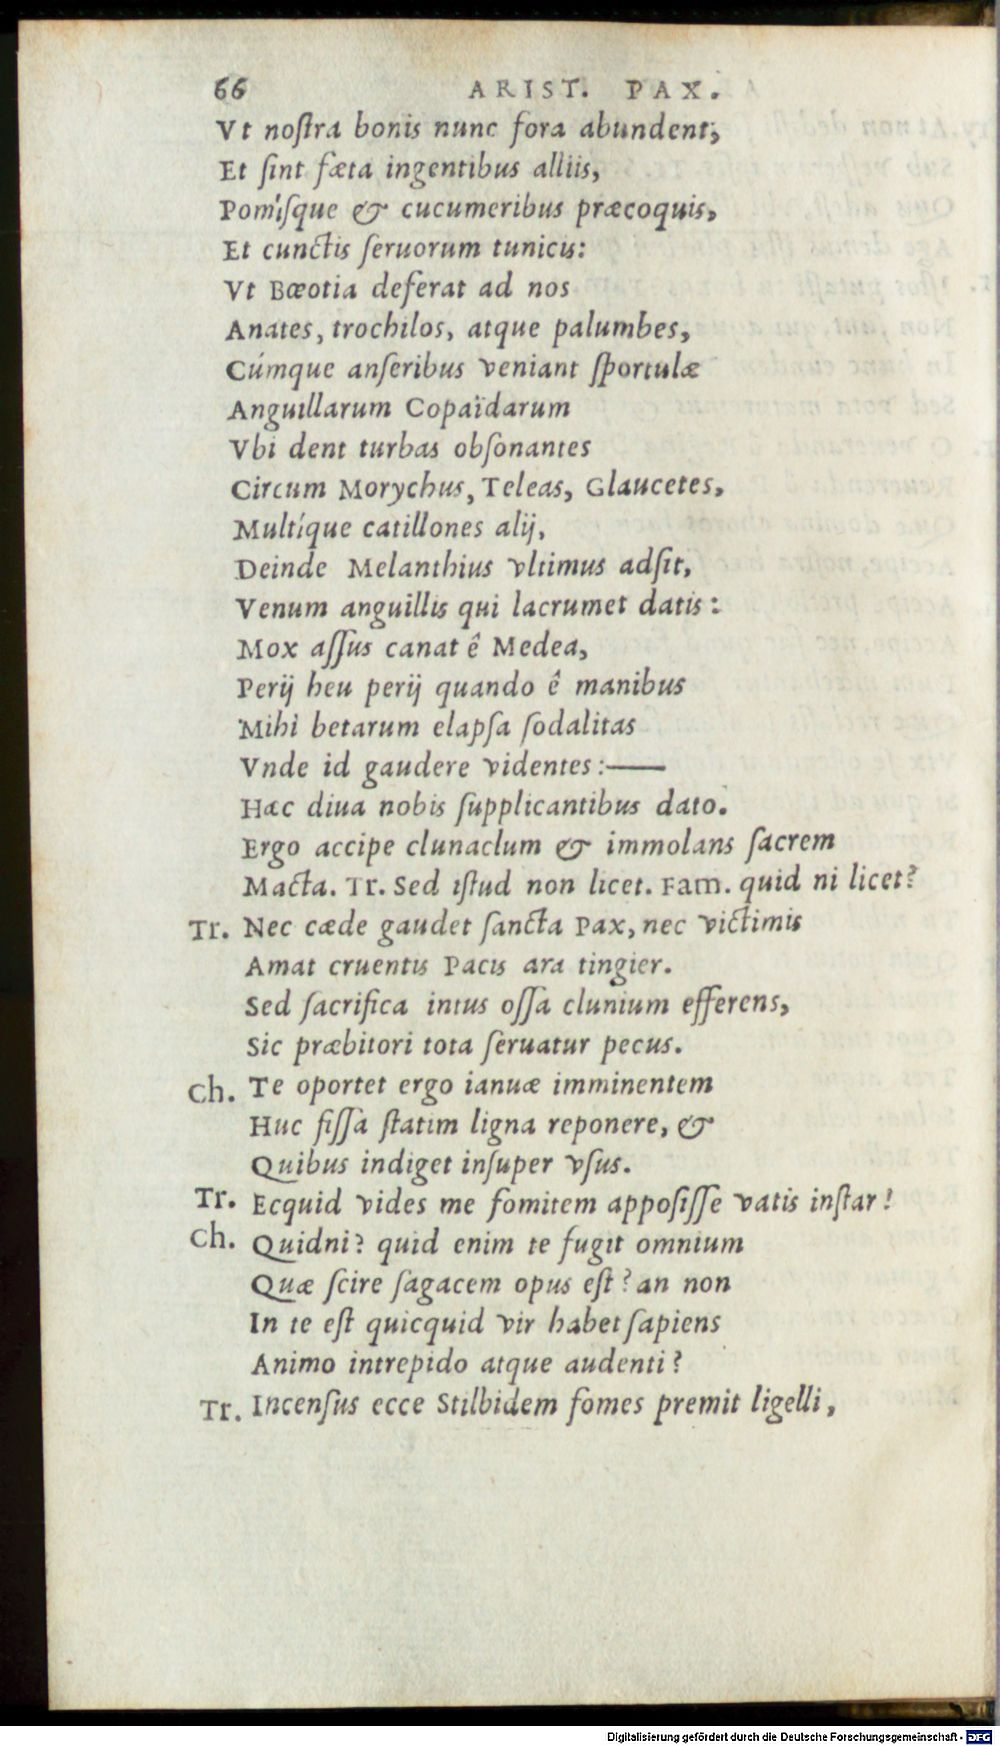 66 ARIST. PAX.
Vt noſtra bonis nunc fora abundent;
Et ſint fæta ingentibus alliis,
Pomíſque & cucumeribus præcoquis,
Et cunctis ſeruorum tunicis:
Vt Bœotia deferat ad nos
Anates, trochilos, atque palumbes,
Cúmque anſeribus veniant ſportulæ
Anguillarum Copaïdarum
Vbi dent turbas obſonantes
Circum Morychus, Teleas, Glaucetes,
Multíque catillones alij,
Deinde Melanthius vltimus adſit,
Venum anguillis qui lacrumet datis:
Mox aſſus canat ê Medea,
Perij heu perij quando ê manibus
Mihi betarum elapſa ſodalitas
Vnde id gaudere videntes:——
Hæc diua nobis ſupplicantibus dato.
Ergo accipe clunaclum & immolans ſacrem
Macta. Tr. Sed iſtud non licet. Fam. quid ni licet?
Tr. Nec cæde gaudet ſancta Pax, nec victimis
Amat cruentis Pacis ara tingier.
Sed ſacrifica intus oſſa clunium efferens,
Sic præbitori tota ſeruatur pecus.
Ch. Te oportet ergo ianuæ imminentem
Huc fiſſa ſtatim ligna reponere, &
Quibus indiget inſuper vſus.
Tr. Ecquid vides me fomitem appoſiſſe vatis inſtar!
Ch. Quidni? quid enim te fugit omnium
Quæ ſcire ſagacem opus eſt? an non
In te eſt quicquid vir habet ſapiens
Animo intrepido atque audenti?
Tr. Incenſus ecce Stilbidem fomes premit ligelli,
Digitalisierung gefördert durch die Deutsche Forschungsgemeinschaft - DFG